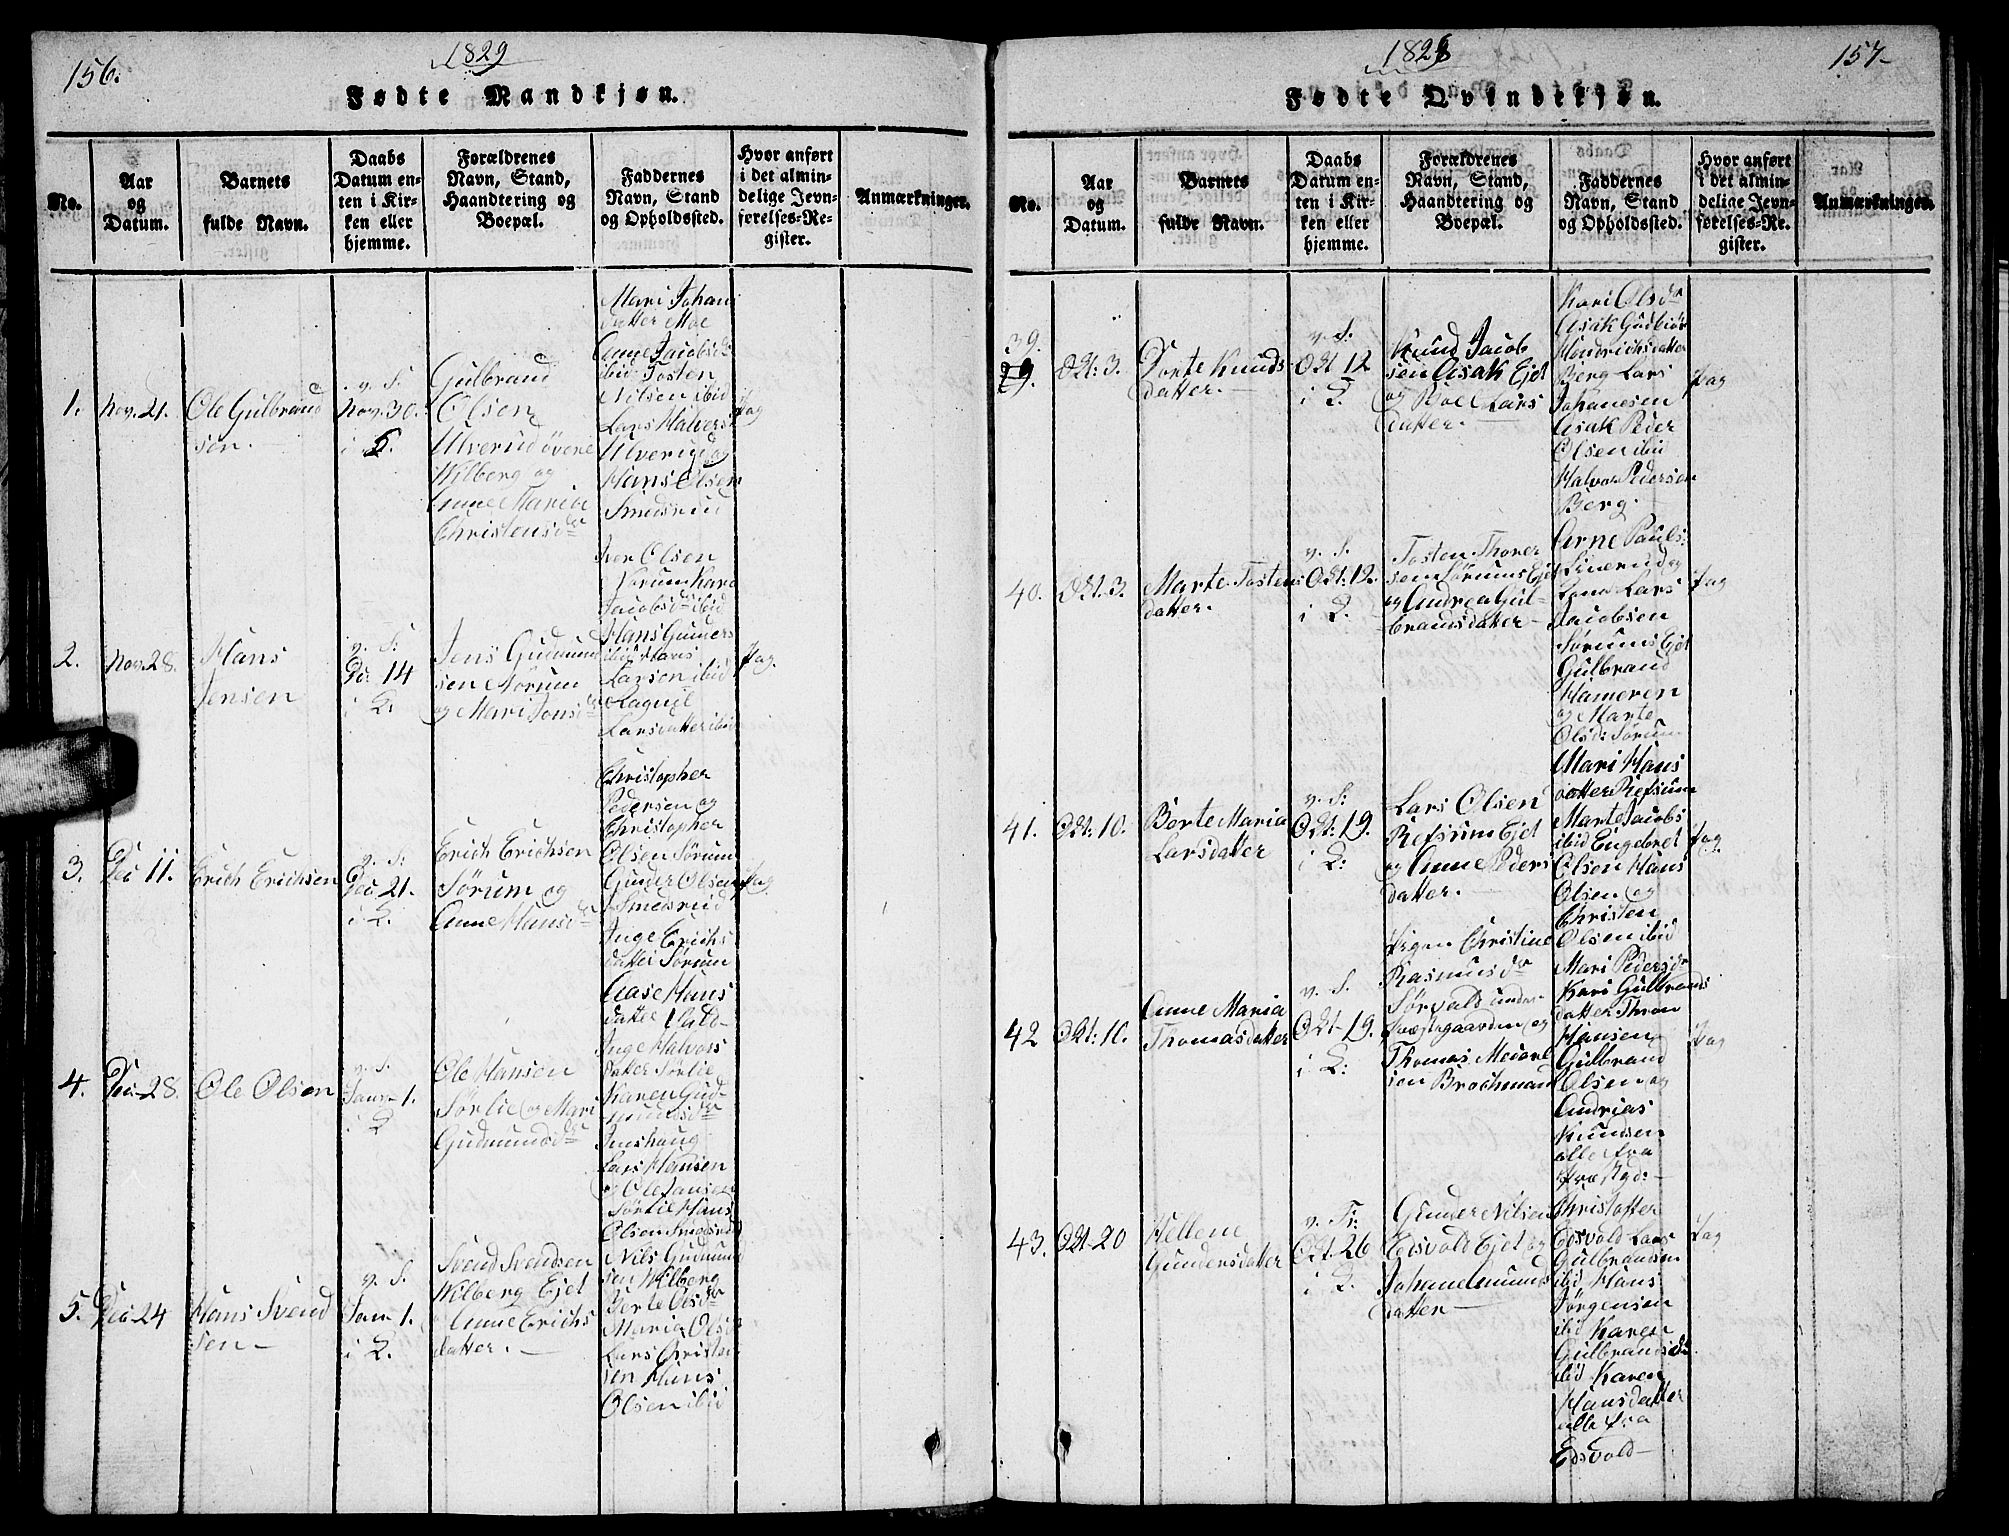 156.
1829
Fødte Mandkjøn.
No.
Aar
og
Datum.
Barnets
fulde Navn.
Daabs
Datum en-
ten i Kir-
ken eller
hjemme.
Forældrenes
Navn, Stand,
Haandtering og
Boepæl.
Faddernes
Navn, Stand
og Opholdssted.
Hvor anført
i det almin-
delige Jevn-
førelses-Re-
gister.
Anmærkninger.
1.
Nov. 21.
Ole Gulbrand
sen.
v. S.
Nov. 30.
i K.
Gulbrand
Olsen
Ulverud øvene
Wilberg og
Anne Maria
Christensdr
Mari Johans
datter Moe
Anne Jacobsd
ibid Tosten
Nilsen ibid
Lars Halvers
Ulverud og
Hans Olsen
Smedsrud
Jag
2.
Nov. 28.
Hans
Jensen
v. S:
De: 14
i K.
Jens Gudmund
sen Norum
og Mari Jonsdr
Iver Olsen
Norum Kari
Jacobsdr ibid
Hans Gunners
ibid Hans
Larsen ibid
Ragnil
Larsdatter ibid
Jag
3.
Dec 11.
Erich Erichsen
v. S:
Dec: 21.
i K.
Erich Erichsen
Sørum og
Anne Hansdr
Christopher
Pedersen og
Christopher
Olsen Sørum
Gunder Olsen
Smedsrud
Inge Erichs
datter Sørum
Jag
4.
Dec. 28.
Ole Olsen
v. S.
Janr 1.
i K
Ole Hansen
Sørlie og Mari
Gudmundsdr
Aase Hans
datter
Inge Halvors
datter Sørlie
Karen Gud-
mundsdr
Jenshaug
Lars Hansen
og Ole Jansen
Sørlie Hans
Olsen Smedsrud
5.
Dec 24
Hans Svend
sen
v. S.
Janr 1.
i K.
Svend Svendsen
Wilberg Ejet
og Anne Erichs
datter.
Nils Gudmund
sen Wilberg
Berte Olsdr
Maria Olsd
Lars Christen
sen Hans
Olsen ibid
157
1828
Fødte Qvindekjøn.
No.
Aar
og
Datum.
Barnets
fulde Navn.
Daabs
Datum en-
ten i Kir-
ken eller
hjemme.
Forældrenes
Navn, Stand,
Haandtering og
Boepæl.
Faddernes
Navn, Stand
og Opholdssted.
Hvor anført
i det almin-
delige Jevn-
førelses-Re-
gister.
Anmærkninger.
39.
Okt: 3.
Dorte Knuds
datter.
v. S.
Okt 12
i K.
Knud Jacob
sen Asak Ejet
og Boel Lars
datter.
Kari Olsdr
Asak Gudbiør
Hendrichsdatter
Berg Lars
Johanesen
Asak Peder
Olsen ibid
Halvor Pedersen
Berg.
Jag
40.
Okt. 3.
Marte Tostens
datter.
v. S.
Okt: 12.
i K.
Tosten Thorer
sen Sørums Ejet
og Andrea Gul-
brandsdatter
Arne Pauls:
Linerud og
Lars
Jacobsen
Sørums Ejet
Gulbrand
Hameren
og Marte
Olsd: Sørum
Jag
41.
Okt: 10.
Berte Maria
Larsdatter
v. S:
Okt: 19.
i K:
Lars Olsen
Refsum Ejet
og Anne Peders
datter.
Mari Hans
datter Refsum
Marte Jacobs
ibid Engebret
Olsen Hans
Olsen og
Christen
Olsen ibid
Jag
42
Okt: 10.
Anne Maria
Thomasdatter
v. S.
Okt 19.
i K:
Pigen Christine
Rasmusdr
Sørvald under
Præstegaarden og
Thomas
sen Brochmand
Mari Pedersdr
Kari Gulbrands
datter Thron
Hansen
Gulbrand
Olsen og
Andreas
Knudsen
alle fra
Præstgd:
Jag
43.
Okt 20
Hellene
Gundersdatter
v. Fr:
Okt. 26
i K.
Gunder Nilsen
Eidsvold Ejet og
Johane Amunds
datter
Christoffer
Edsvold Lars
Gulbrandsen
ibid Hans
Jørgensen
ibid Karen
Gulbrandsd:
ibid Karen
Hansdatter
alle fra
Edsvold
Jag